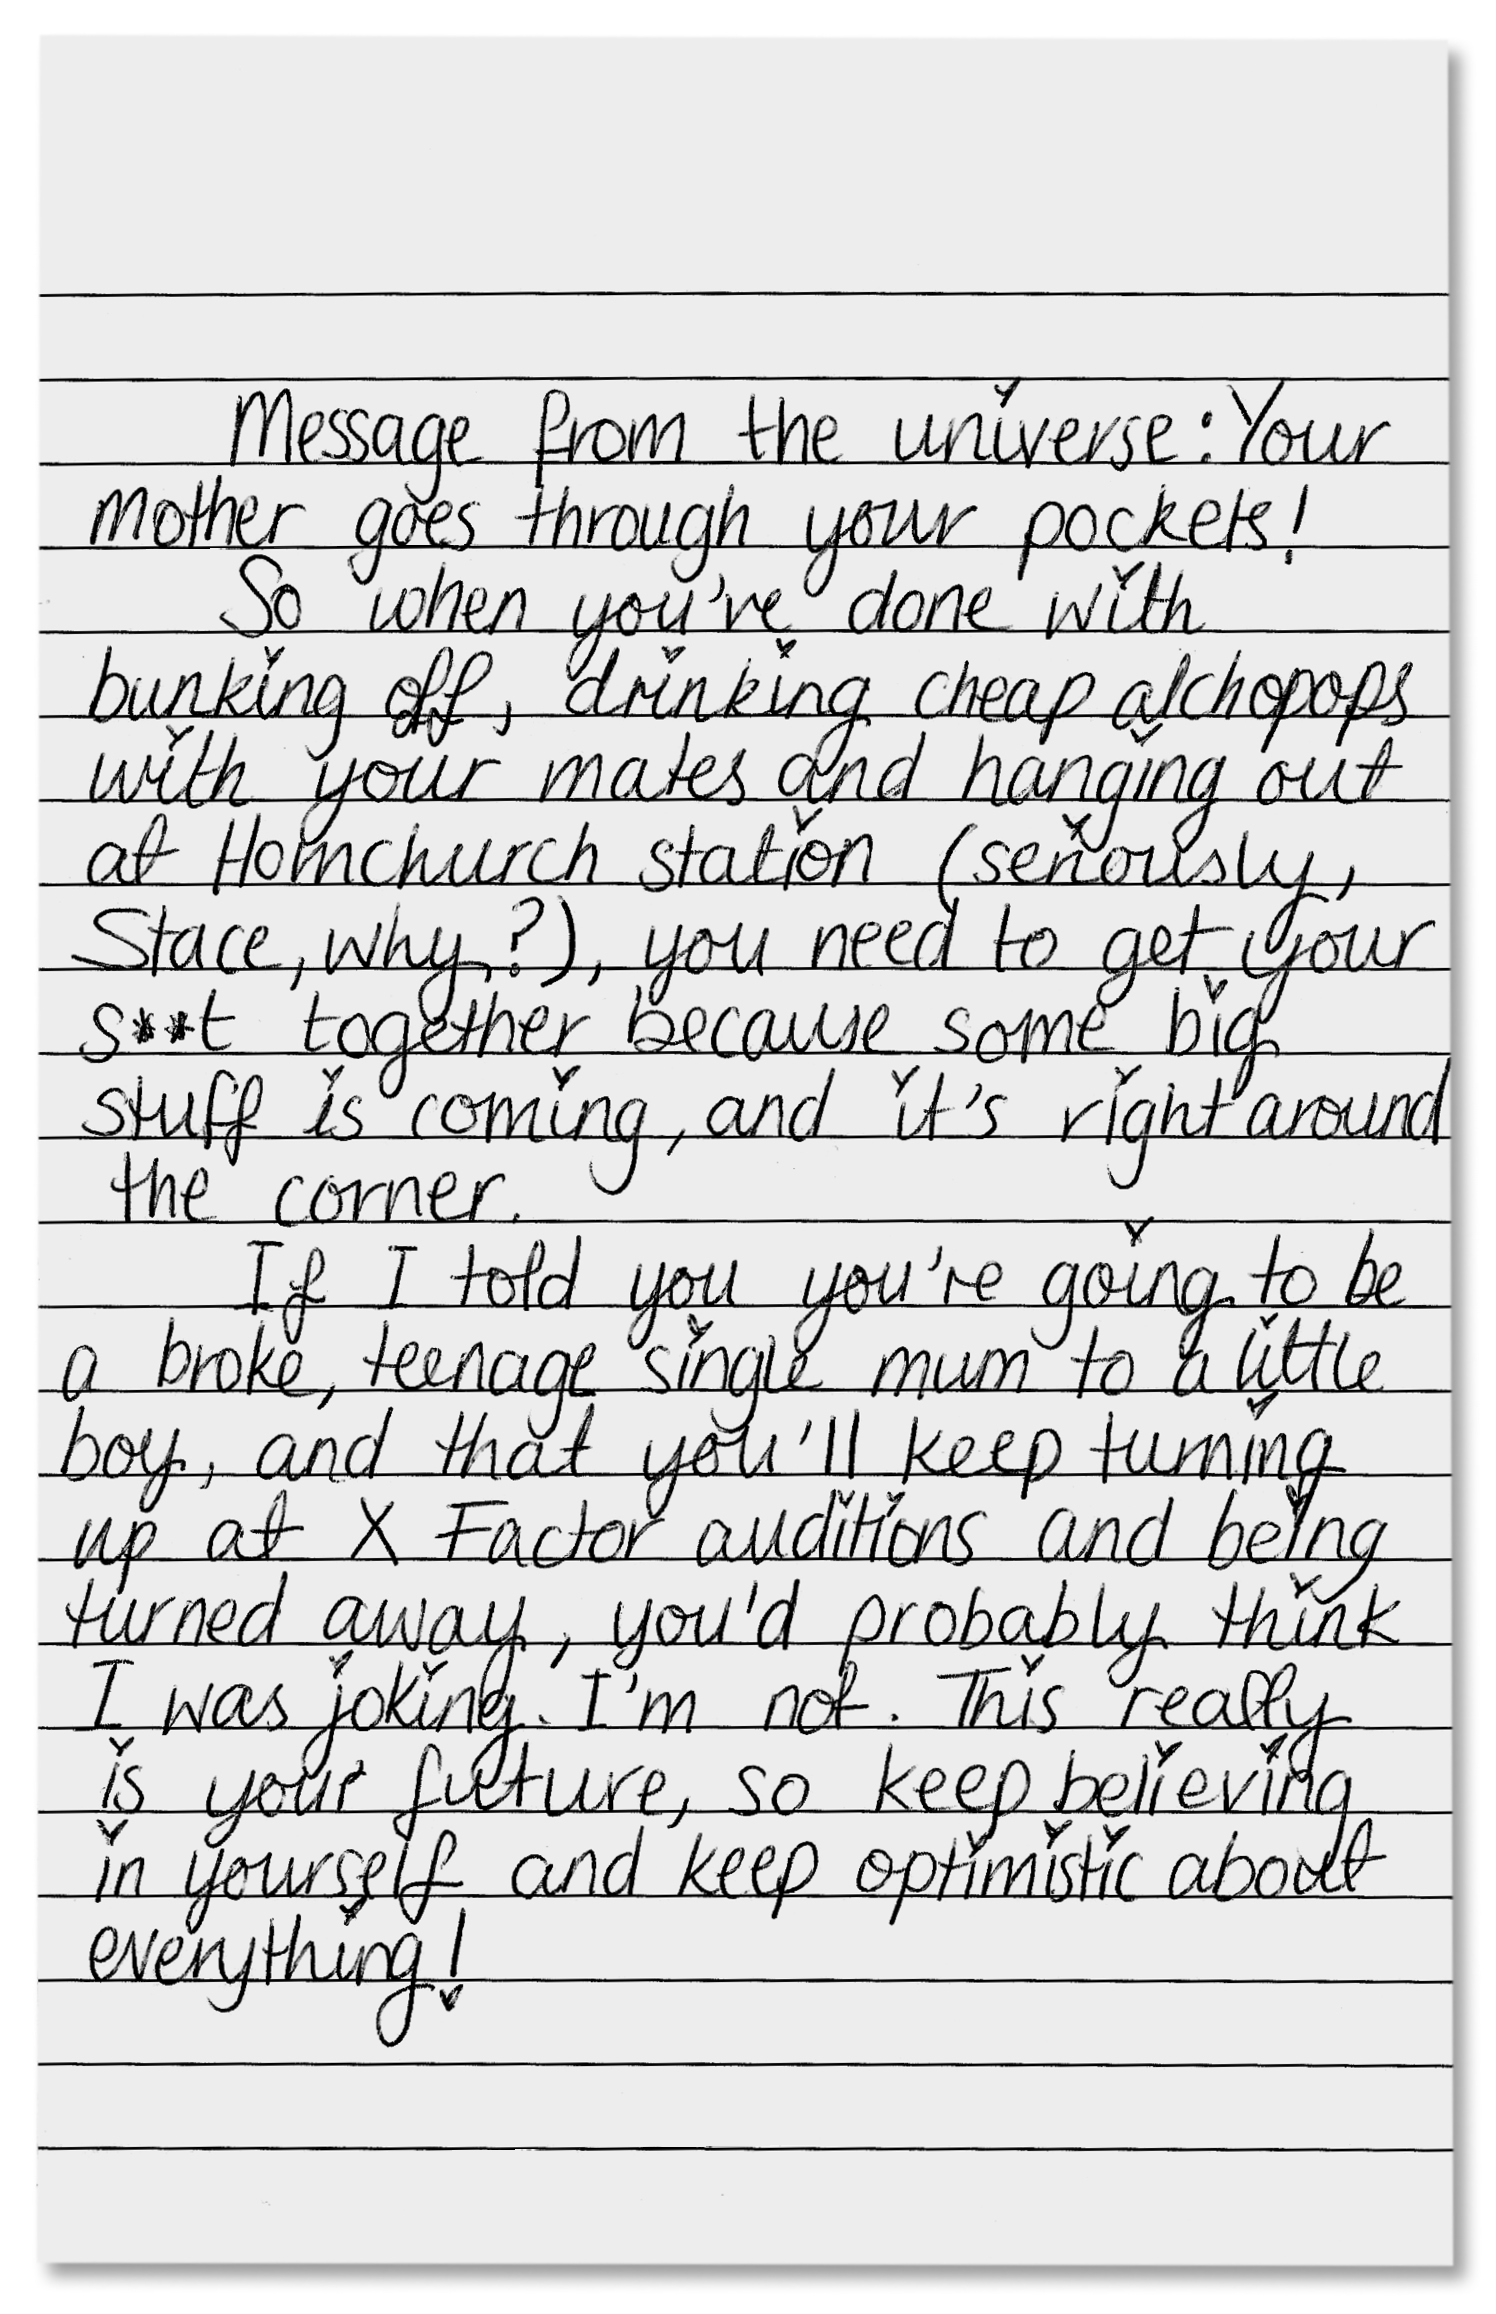 Message from the universe: Your
mother goes through your pockets!
So when you've done with
bunking off, drinking cheap alchopops
with your mates and hanging out
at Hornchurch station (seriously,
Stace, why?), you need to get your
s**t together because some big
stuff is coming, and it's right around
the corner.
If I told you you're going to be
a broke, teenage single mum to a little
boy, and that you'll keep turning
up at X Factor auditions and being
turned away, you'd probably think
I was joking. I'm not. This really
is your future, so keep believing
in yourself and keep optimistic about
everything!